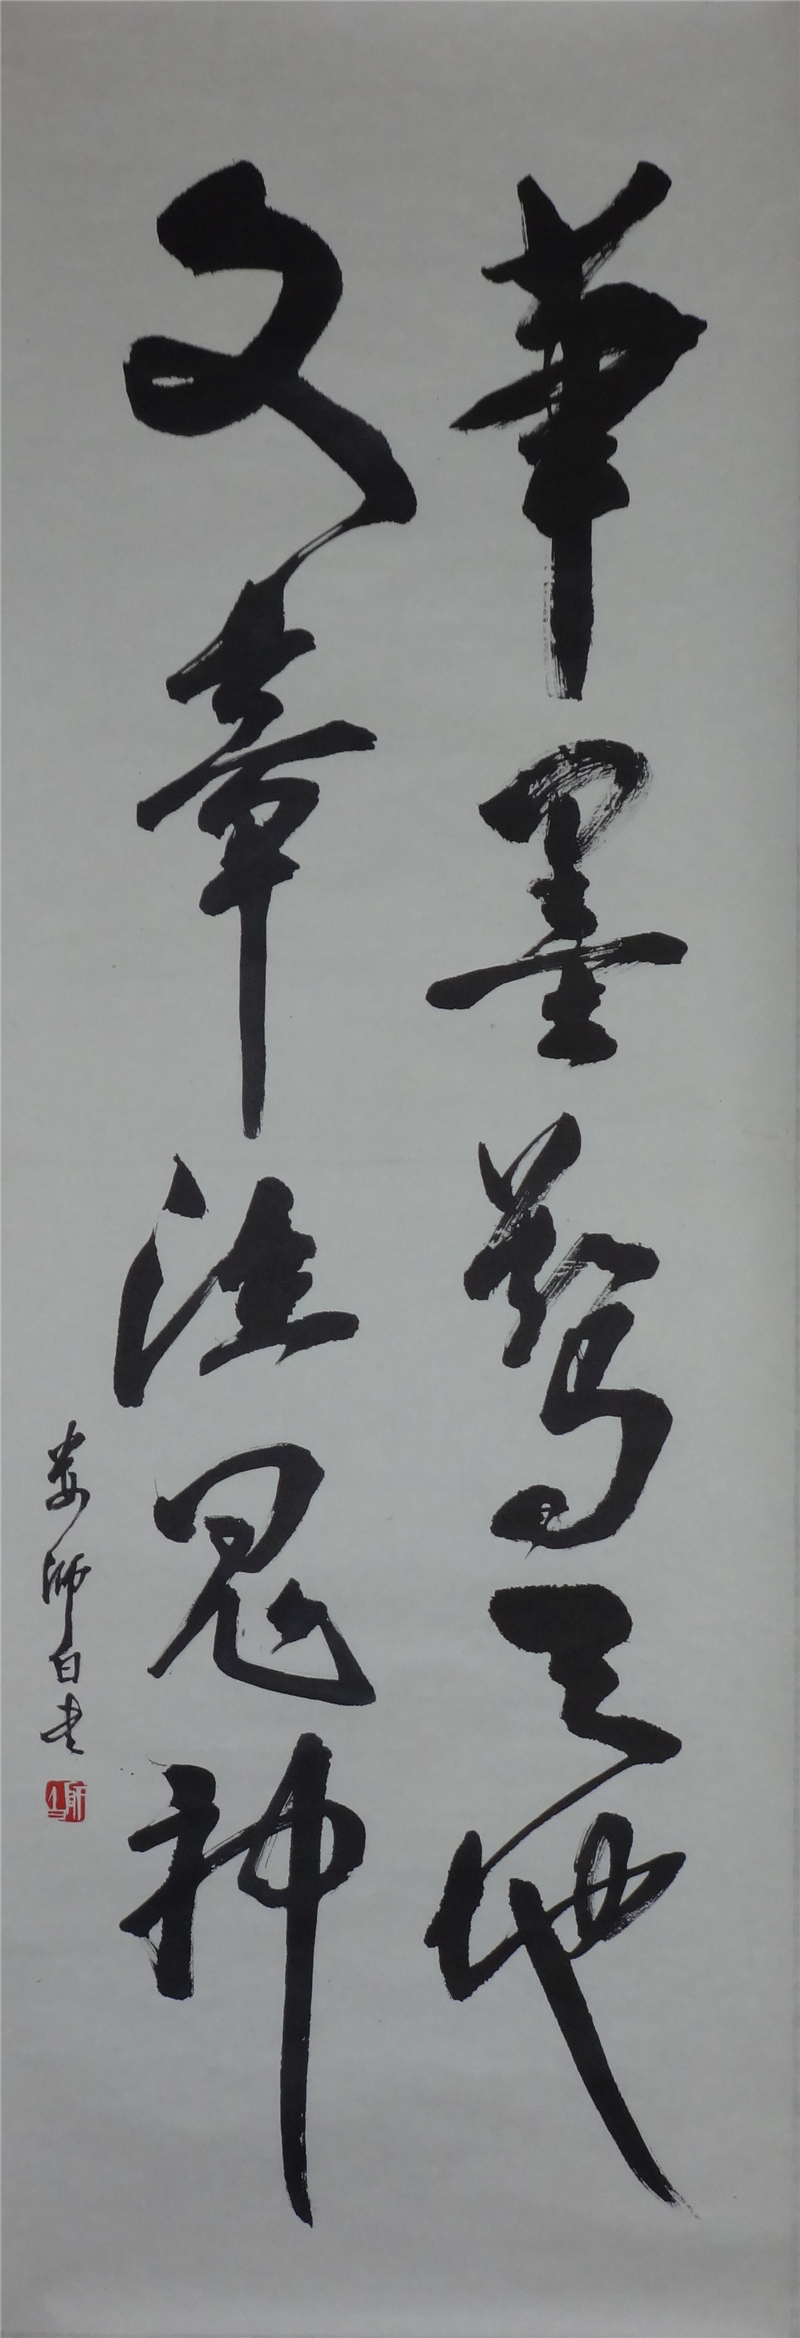 筆墨驚天地
文章泣鬼神
婁師白書